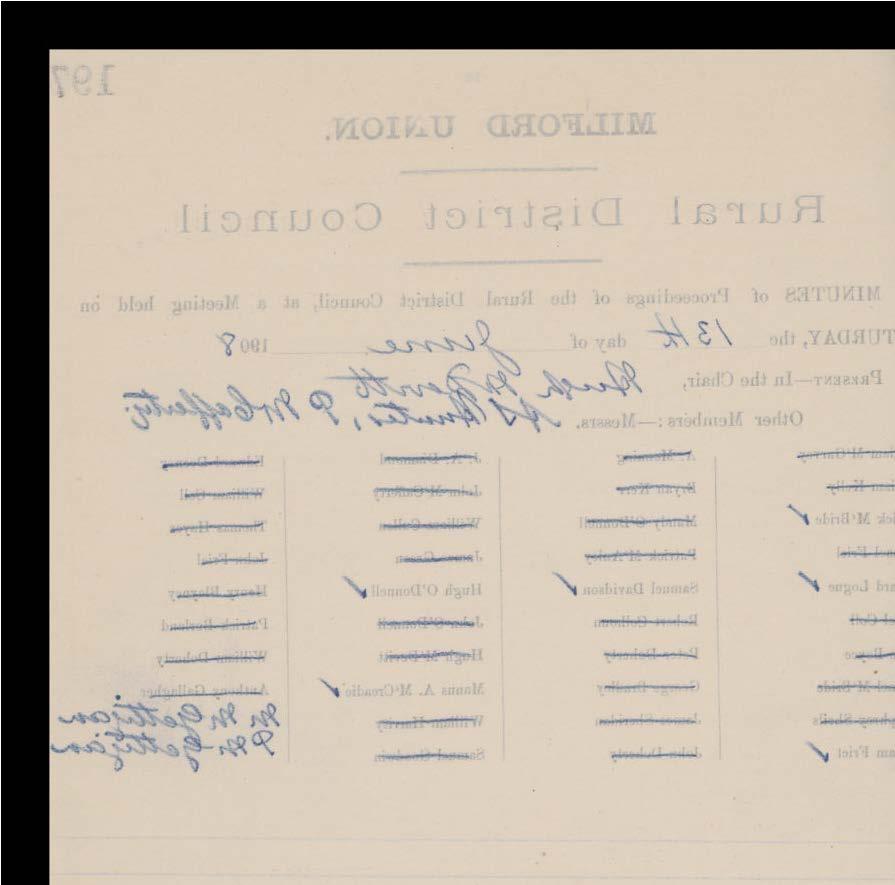 197
MILFORD UNION.
Rural District Council
MINUTES of Proceedings of the Rural District Council, at a Meeting held on
TURDAY, the 13th day of June 1908
PRESENT—In the Chair, Hugh
Other Members:—Messrs. Hunter, P McCafferty.
A. Manning J. A. Diamond Edward Deeney
Kelly Bryan Kerr John McCafferty William Coll
McBride Mandy O'Donnell William Cullen Thomas Hayes
Friel Patrick McAuley James Green John Friel
Logue Samuel Davidson Hugh O'Donnell Henry Blayney
Coll Robert Colhoun John O'Donnell Patrick Borland
Boyce Peter Doherty Hugh McDevitt William Doherty
McBride George Bradley Manus A. McCreadie Anthony Gallagher
Shells James Sheridan William Harvey
Friel John Doherty Samuel Goodwin
M McGettigan
P McGettigan